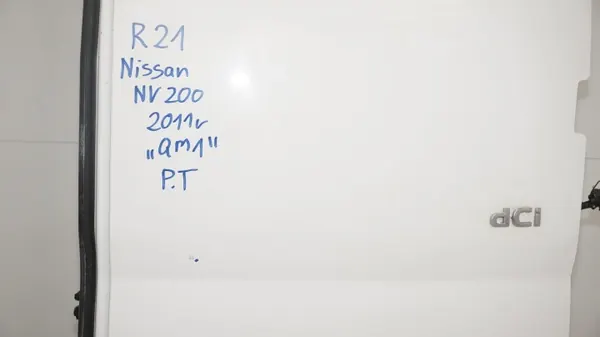 R21
Nissan
NV200
2011r
„QM1"
P.T
dCi